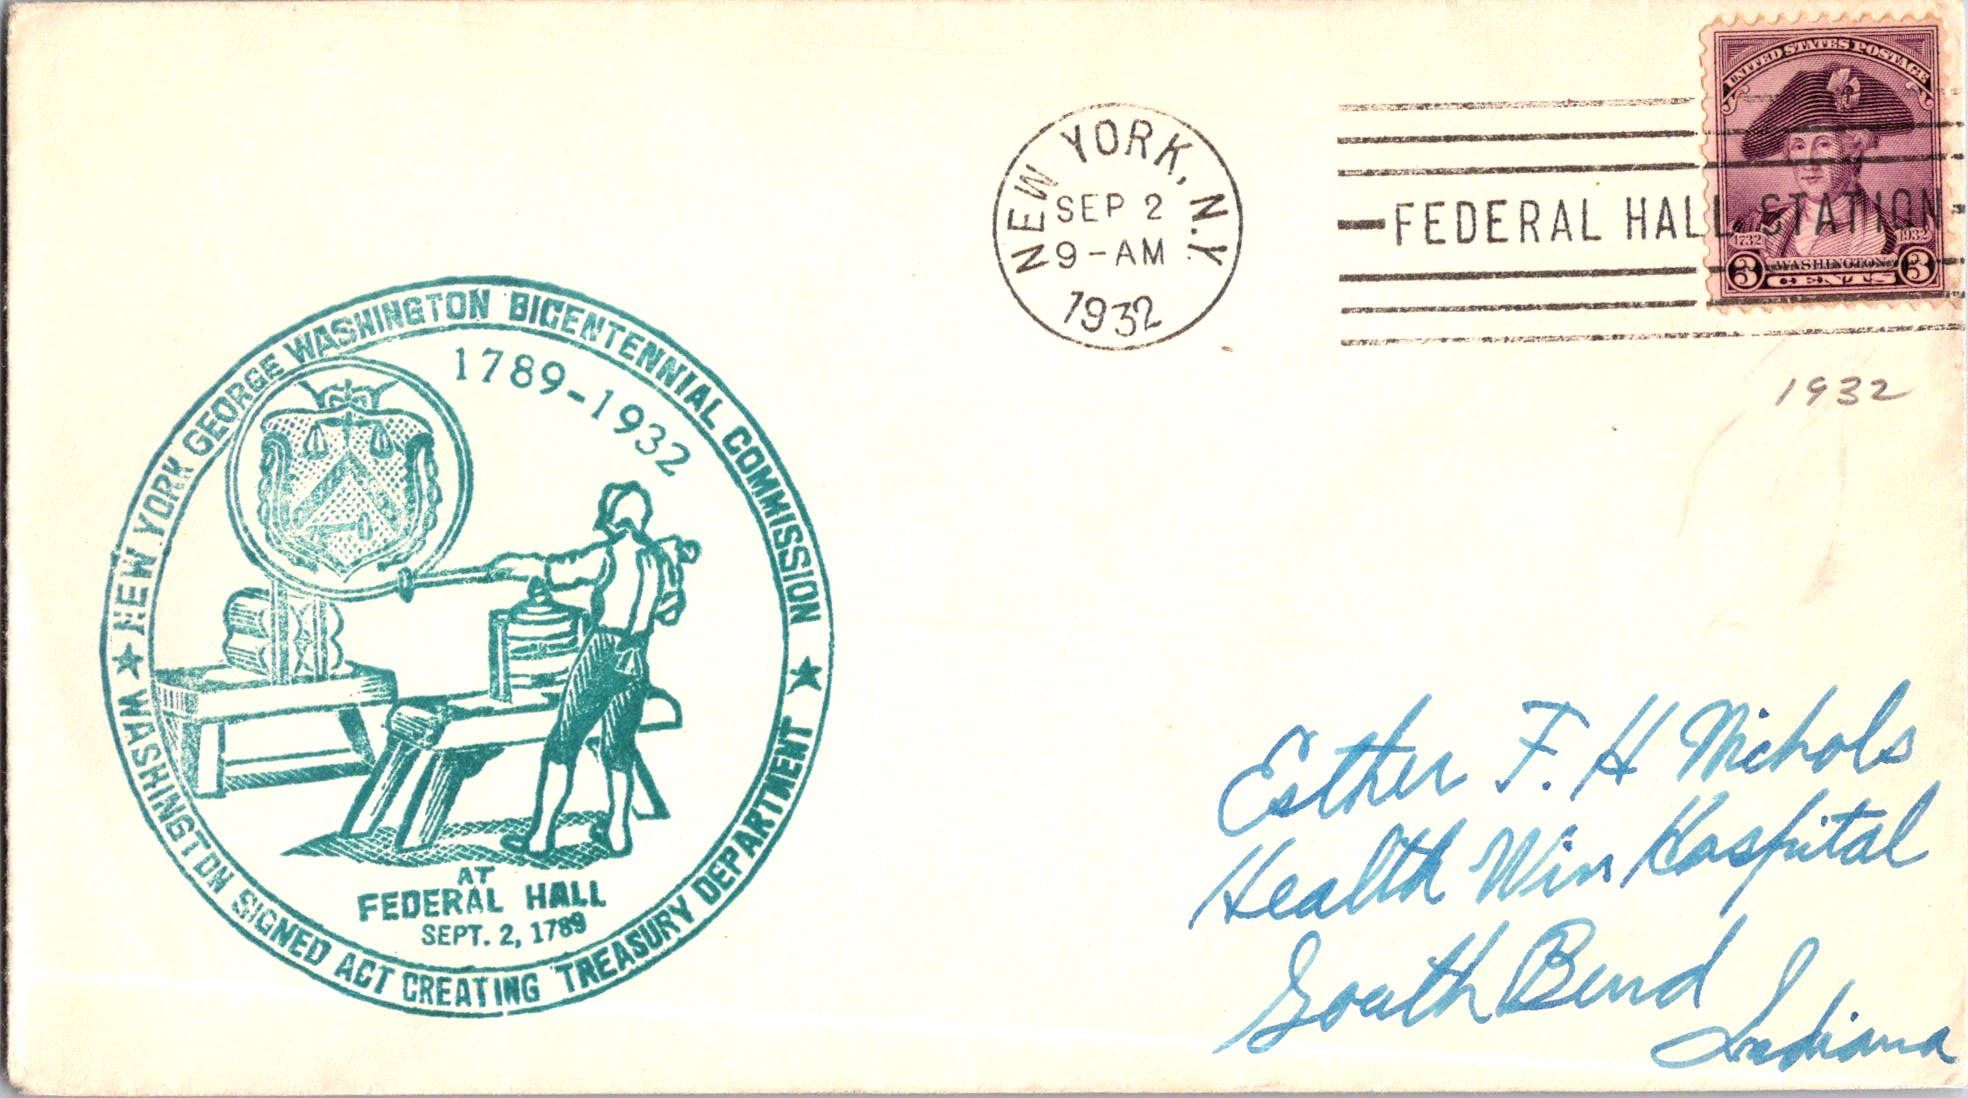 NEW YORK, N.Y.
SEP 2
9-AM
1932
FEDERAL HALL STATION
UNITED STATES POSTAGE
1732 1932
3 WASHINGTON 3
CENTS
1932
NEW YORK GEORGE WASHINGTON BICENTENNIAL COMMISSION
1789-1932
AT
FEDERAL HALL
SEPT. 2, 1789
WASHINGTON SIGNED ACT CREATING TREASURY DEPARTMENT
Esther F. H Nichols
Health Win Hospital
South Bend
Indiana